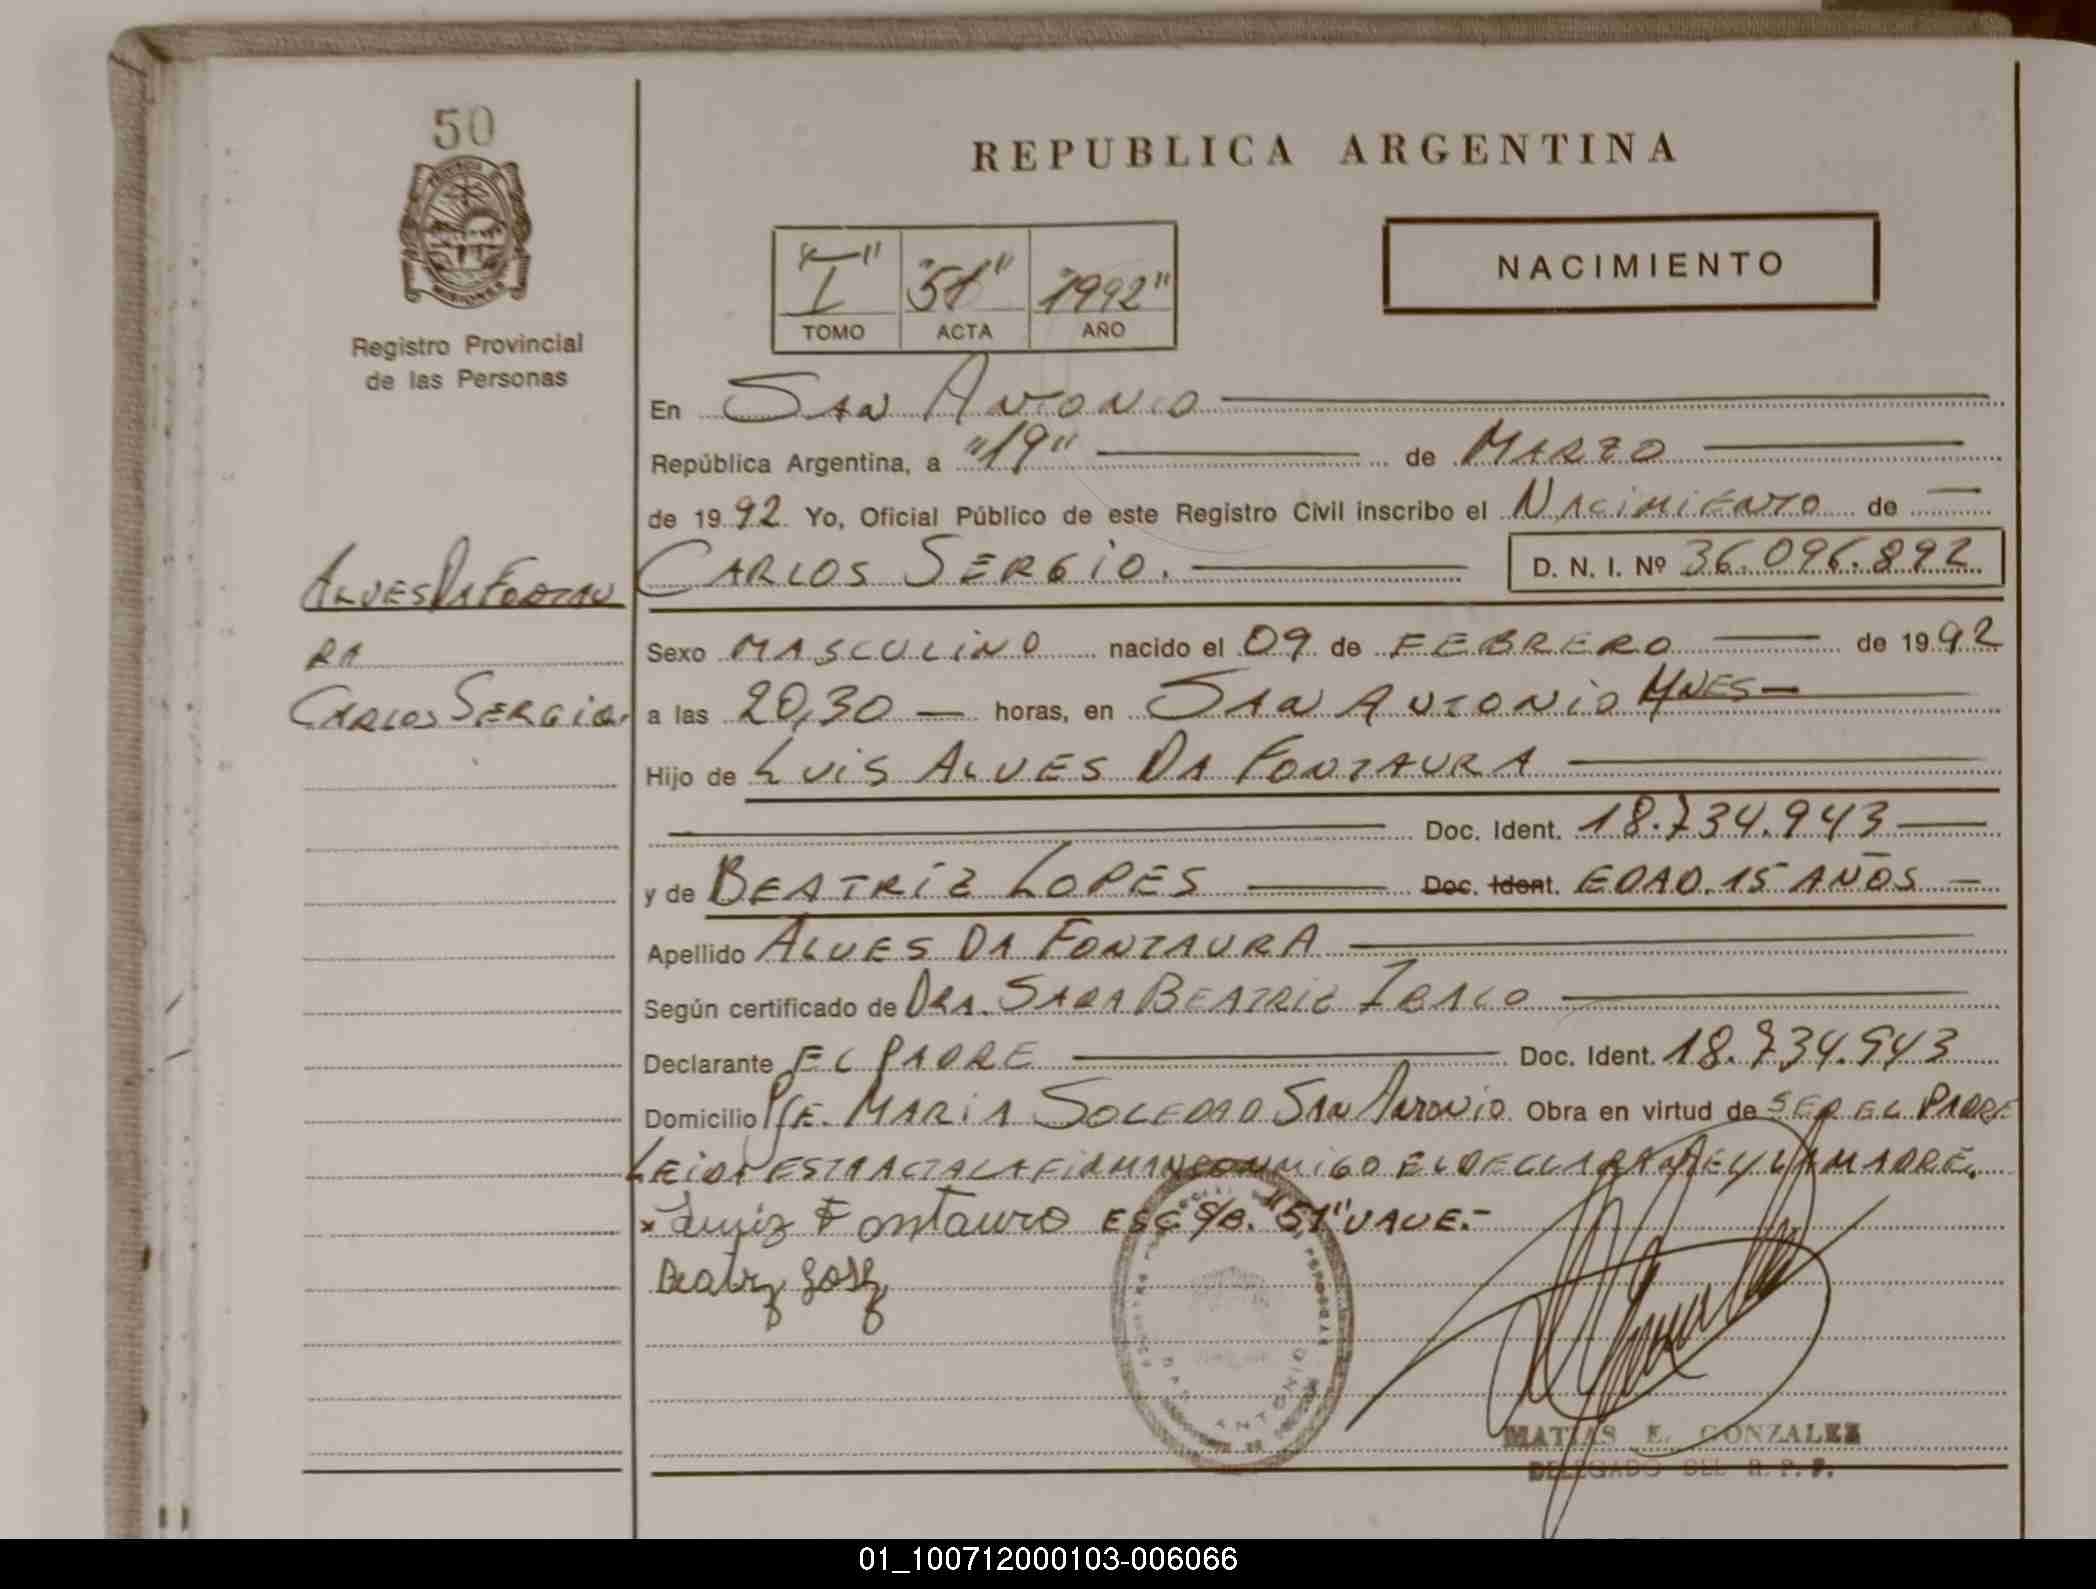 50
PROVINCIA DE
MISIONES
Registro Provincial
de las Personas
REPUBLICA ARGENTINA
"I" "51" "1992"
TOMO ACTA AÑO
NACIMIENTO
En San Antonio
República Argentina, a "19" de Marzo
de 1992 Yo, Oficial Público de este Registro Civil inscribo el Nacimiento de
Alves Da Fontau
ra
Carlos Sergio.
Carlos Sergio. D. N. I. Nº 36.096.892
Sexo masculino nacido el 09 de Febrero de 1992
a las 20,30 horas, en San Antonio Mnes
Hijo de Luis Alves Da Fontaura
Doc. Ident. 18.734.943
y de Beatriz Lopes Doc. Ident. Edad. 15 años
Apellido Alves Da Fontaura
Según certificado de Dra. Sara Beatriz
Declarante el Padre Doc. Ident. 18.734.943
Domicilio Pje. Maria Soledad San Antonio Obra en virtud de ser el Padre
Leida esta acta la firman conmigo el declarante y la madre.
x Luiz Fontauro Esc s/b. "51" vale.-
Beatriz
SAN ANTONIO
MATIAS E. GONZALEZ
DELEGADO DEL R. P. P.
01_100712000103-006066